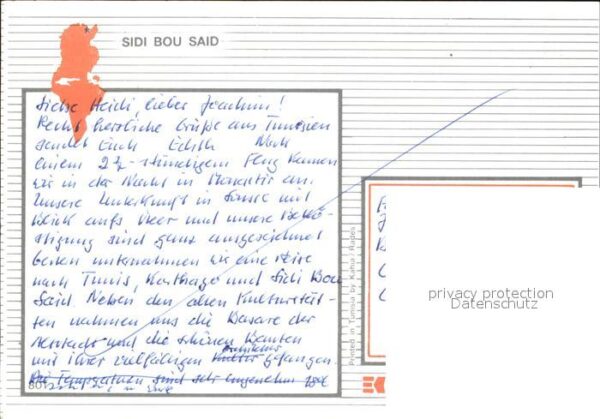 SIDI BOU SAID
Liebe Heidi, lieber Joachim!
Recht herzliche Grüße aus Tunesien
sendet Euch Edith Nach
einem 2½-stündigem Flug kamen
wir in der Nacht in Monastir an.
Unsere Unterkunft in Sousse mit
Blick aufs Meer und unsere Bekö-
stigung sind ganz ausgezeichnet
unternahmen wir eine Reise
nach Tunis, Karthago und Sidi Bou
Said Neben den alten Kulturstät-
ten nahmen uns die Basare der
und die schönen Bauten
mit ihrer vielfältigen gefangen.
Die Temperaturen sind sehr angenehm
801
Printed in Tunisia by Kahia / Rades
privacy protection
Datenschutz